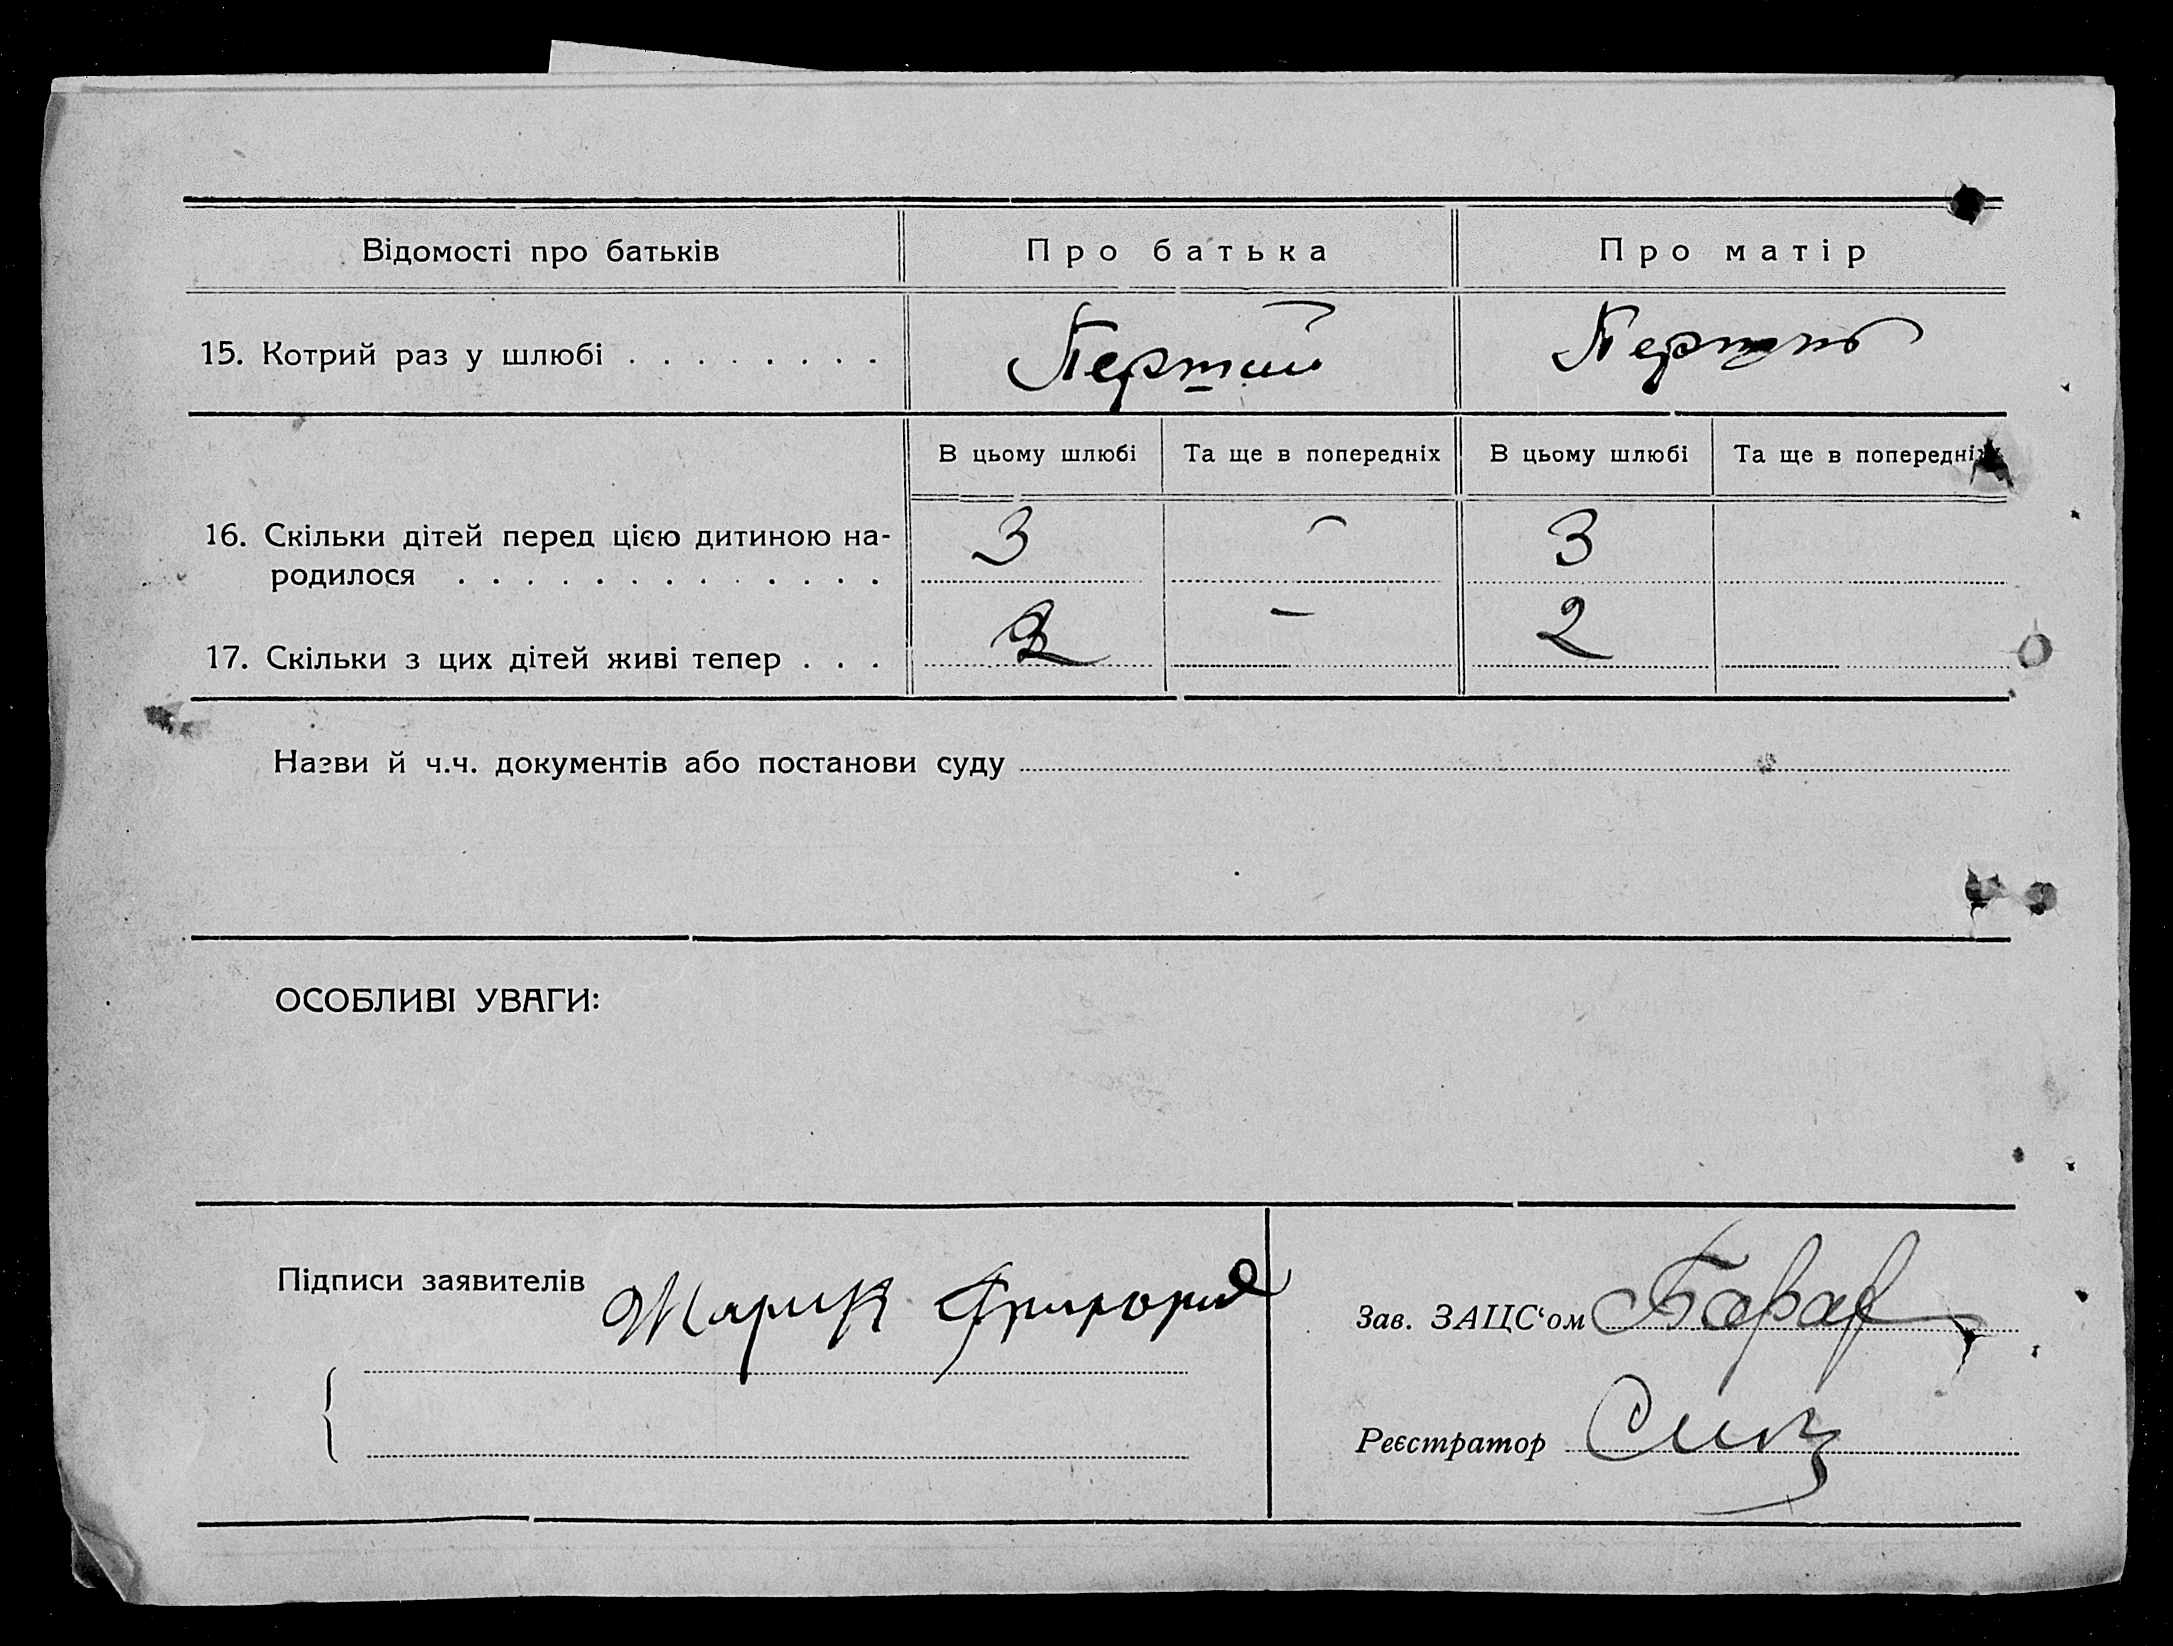 Відомості про батьків Про батька Про матір
15. Котрий раз у шлюбі . . . . . . . . Перший
В цьому шлюбі Та ще в попередніх В цьому шлюбі Та ще в попередніх
16. Скільки дітей перед цією дитиною на-
родилося . . . . . . . . . . . . . 3 – 3
17. Скільки з цих дітей живі тепер . . . 2 – 2
Назви й ч.ч. документів або постанови суду
ОСОБЛИВІ УВАГИ:
Підписи заявителів
Зав. ЗАЦС‘ом
Реєстратор